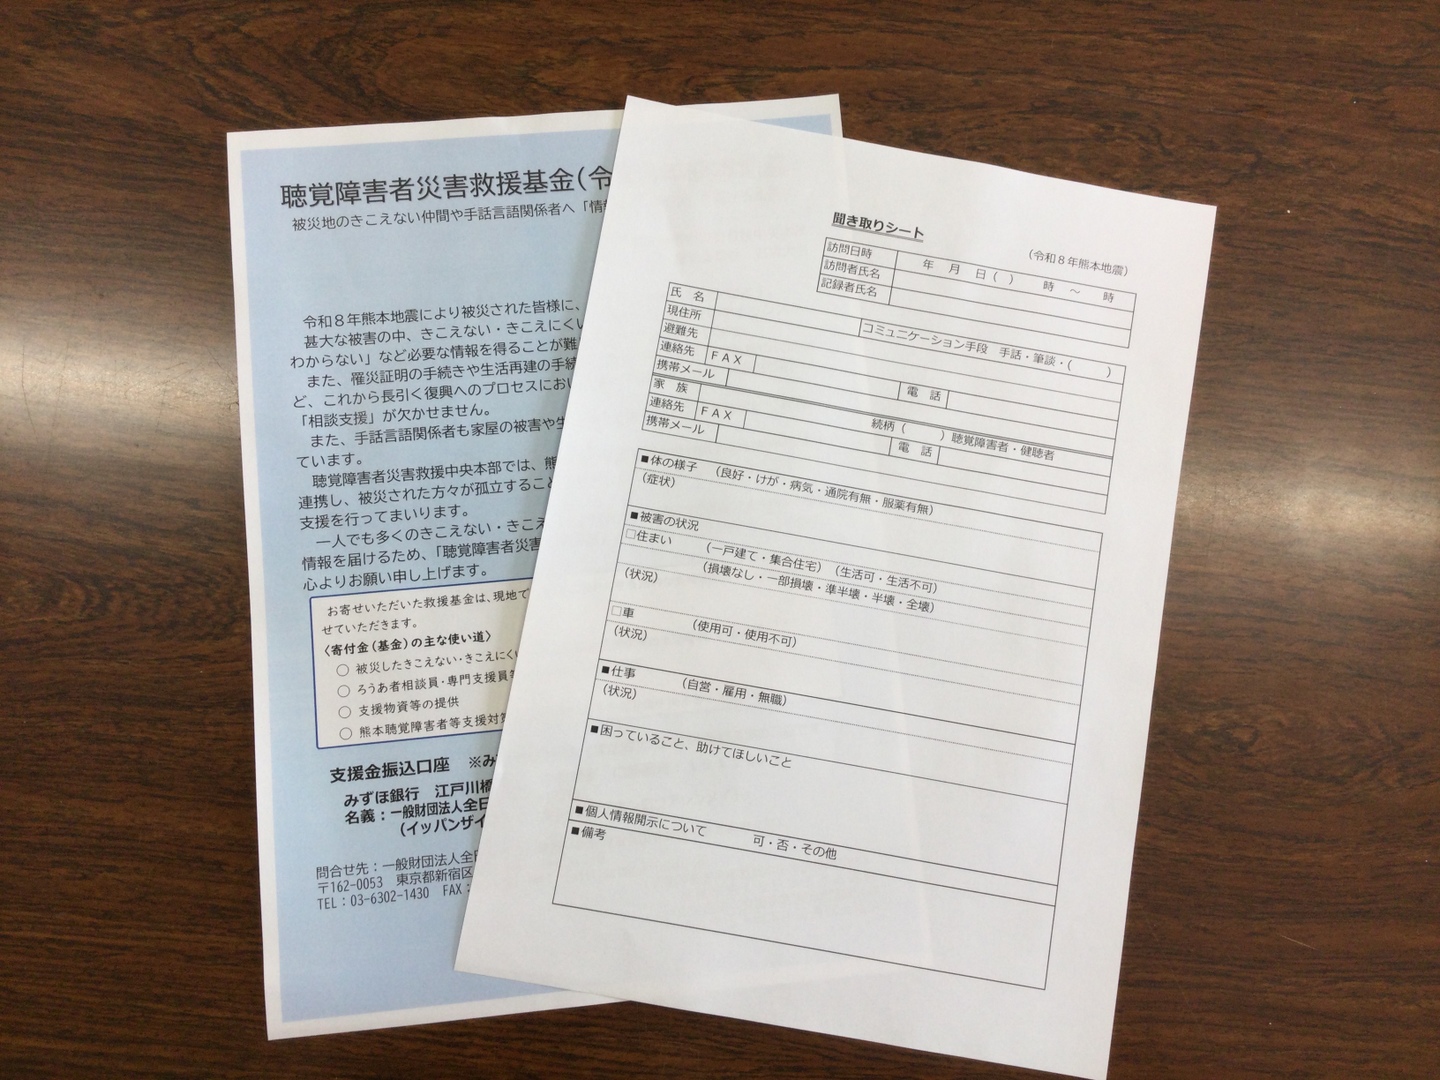 聴覚障害者災害救援基金(令
被災地のきこえない仲間や手話言語関係者へ「情
令和８年熊本地震により被災された皆様に、
甚大な被害の中、きこえない・きこえにくい
わからない」など必要な情報を得ることが難
また、罹災証明の手続きや生活再建の手続
ど、これから長引く復興へのプロセスにおい
「相談支援」が欠かせません。
また、手話言語関係者も家屋の被害や生
ています。
聴覚障害者災害救援中央本部では、熊
連携し、被災された方々が孤立すること
支援を行ってまいります。
一人でも多くのきこえない・きこえ
情報を届けるため、「聴覚障害者災害
心よりお願い申し上げます。
お寄せいただいた救援基金は、現地で
せていただきます。
〈寄付金（基金）の主な使い道〉
○ 被災したきこえない・きこえにくい
○ ろうあ者相談員・専門支援員等
○ 支援物資等の提供
○ 熊本聴覚障害者等支援対策
支援金振込口座 ※み
みずほ銀行 江戸川橋
名義：一般財団法人全日
(イッパンザイ
問合せ先：一般財団法人全日
〒162-0053 東京都新宿区
TEL：03-6302-1430 FAX：
聞き取りシート
（令和８年熊本地震）
訪問日時 年 月 日（ ） 時 ～ 時
訪問者氏名
記録者氏名
氏 名
現住所 コミュニケーション手段 手話・筆談・（ ）
避難先
連絡先 ＦＡＸ 電 話
携帯メール
家 族 続柄（ ）聴覚障害者・健聴者
連絡先 ＦＡＸ 電 話
携帯メール
■体の様子 （良好・けが・病気・通院有無・服薬有無）
（症状）
■被害の状況
□住まい （一戸建て・集合住宅）（生活可・生活不可）
（損壊なし・一部損壊・準半壊・半壊・全壊）
（状況）
□車 （使用可・使用不可）
（状況）
■仕事 （自営・雇用・無職）
（状況）
■困っていること、助けてほしいこと
■個人情報開示について 可・否・その他
■備考